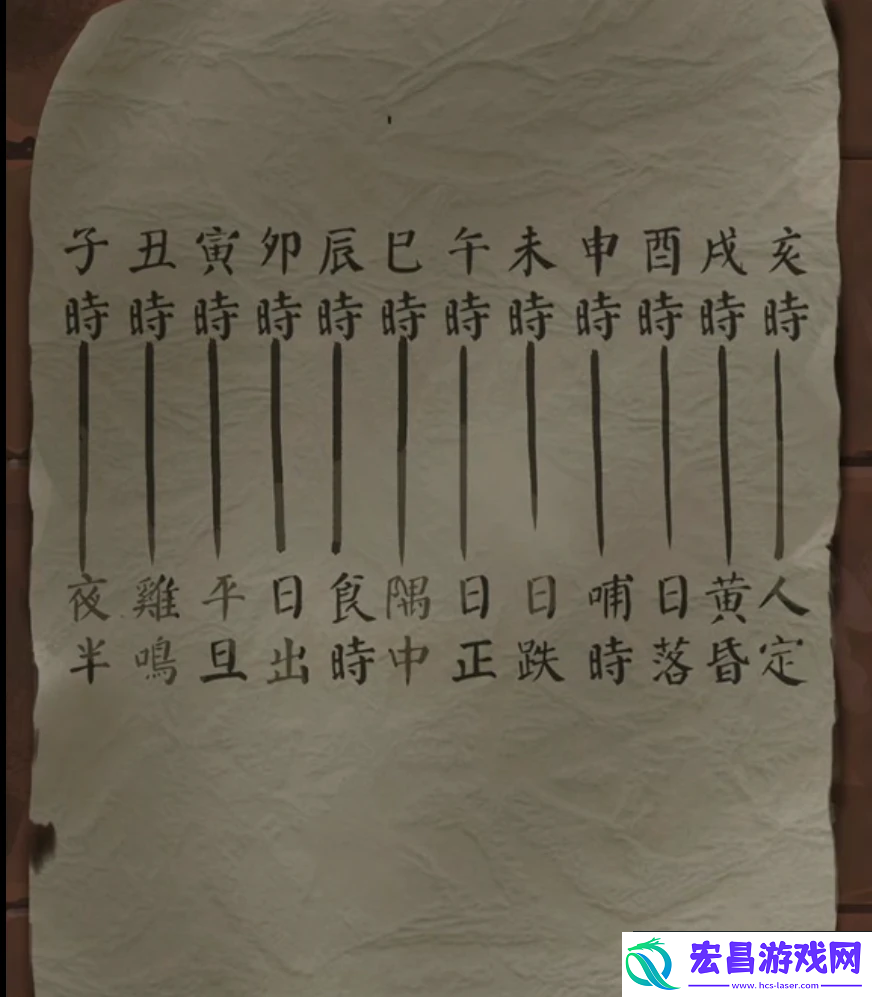 子 丑 寅 卯 辰 巳 午 未 申 酉 戌 亥
時 時 時 時 時 時 時 時 時 時 時 時
夜 雞 平 日 食 隅 日 日 哺 日 黄 人
半 鳴 旦 出 時 中 正 跌 時 落 昏 定
宏昌游戏网
www.hcs-laser.com